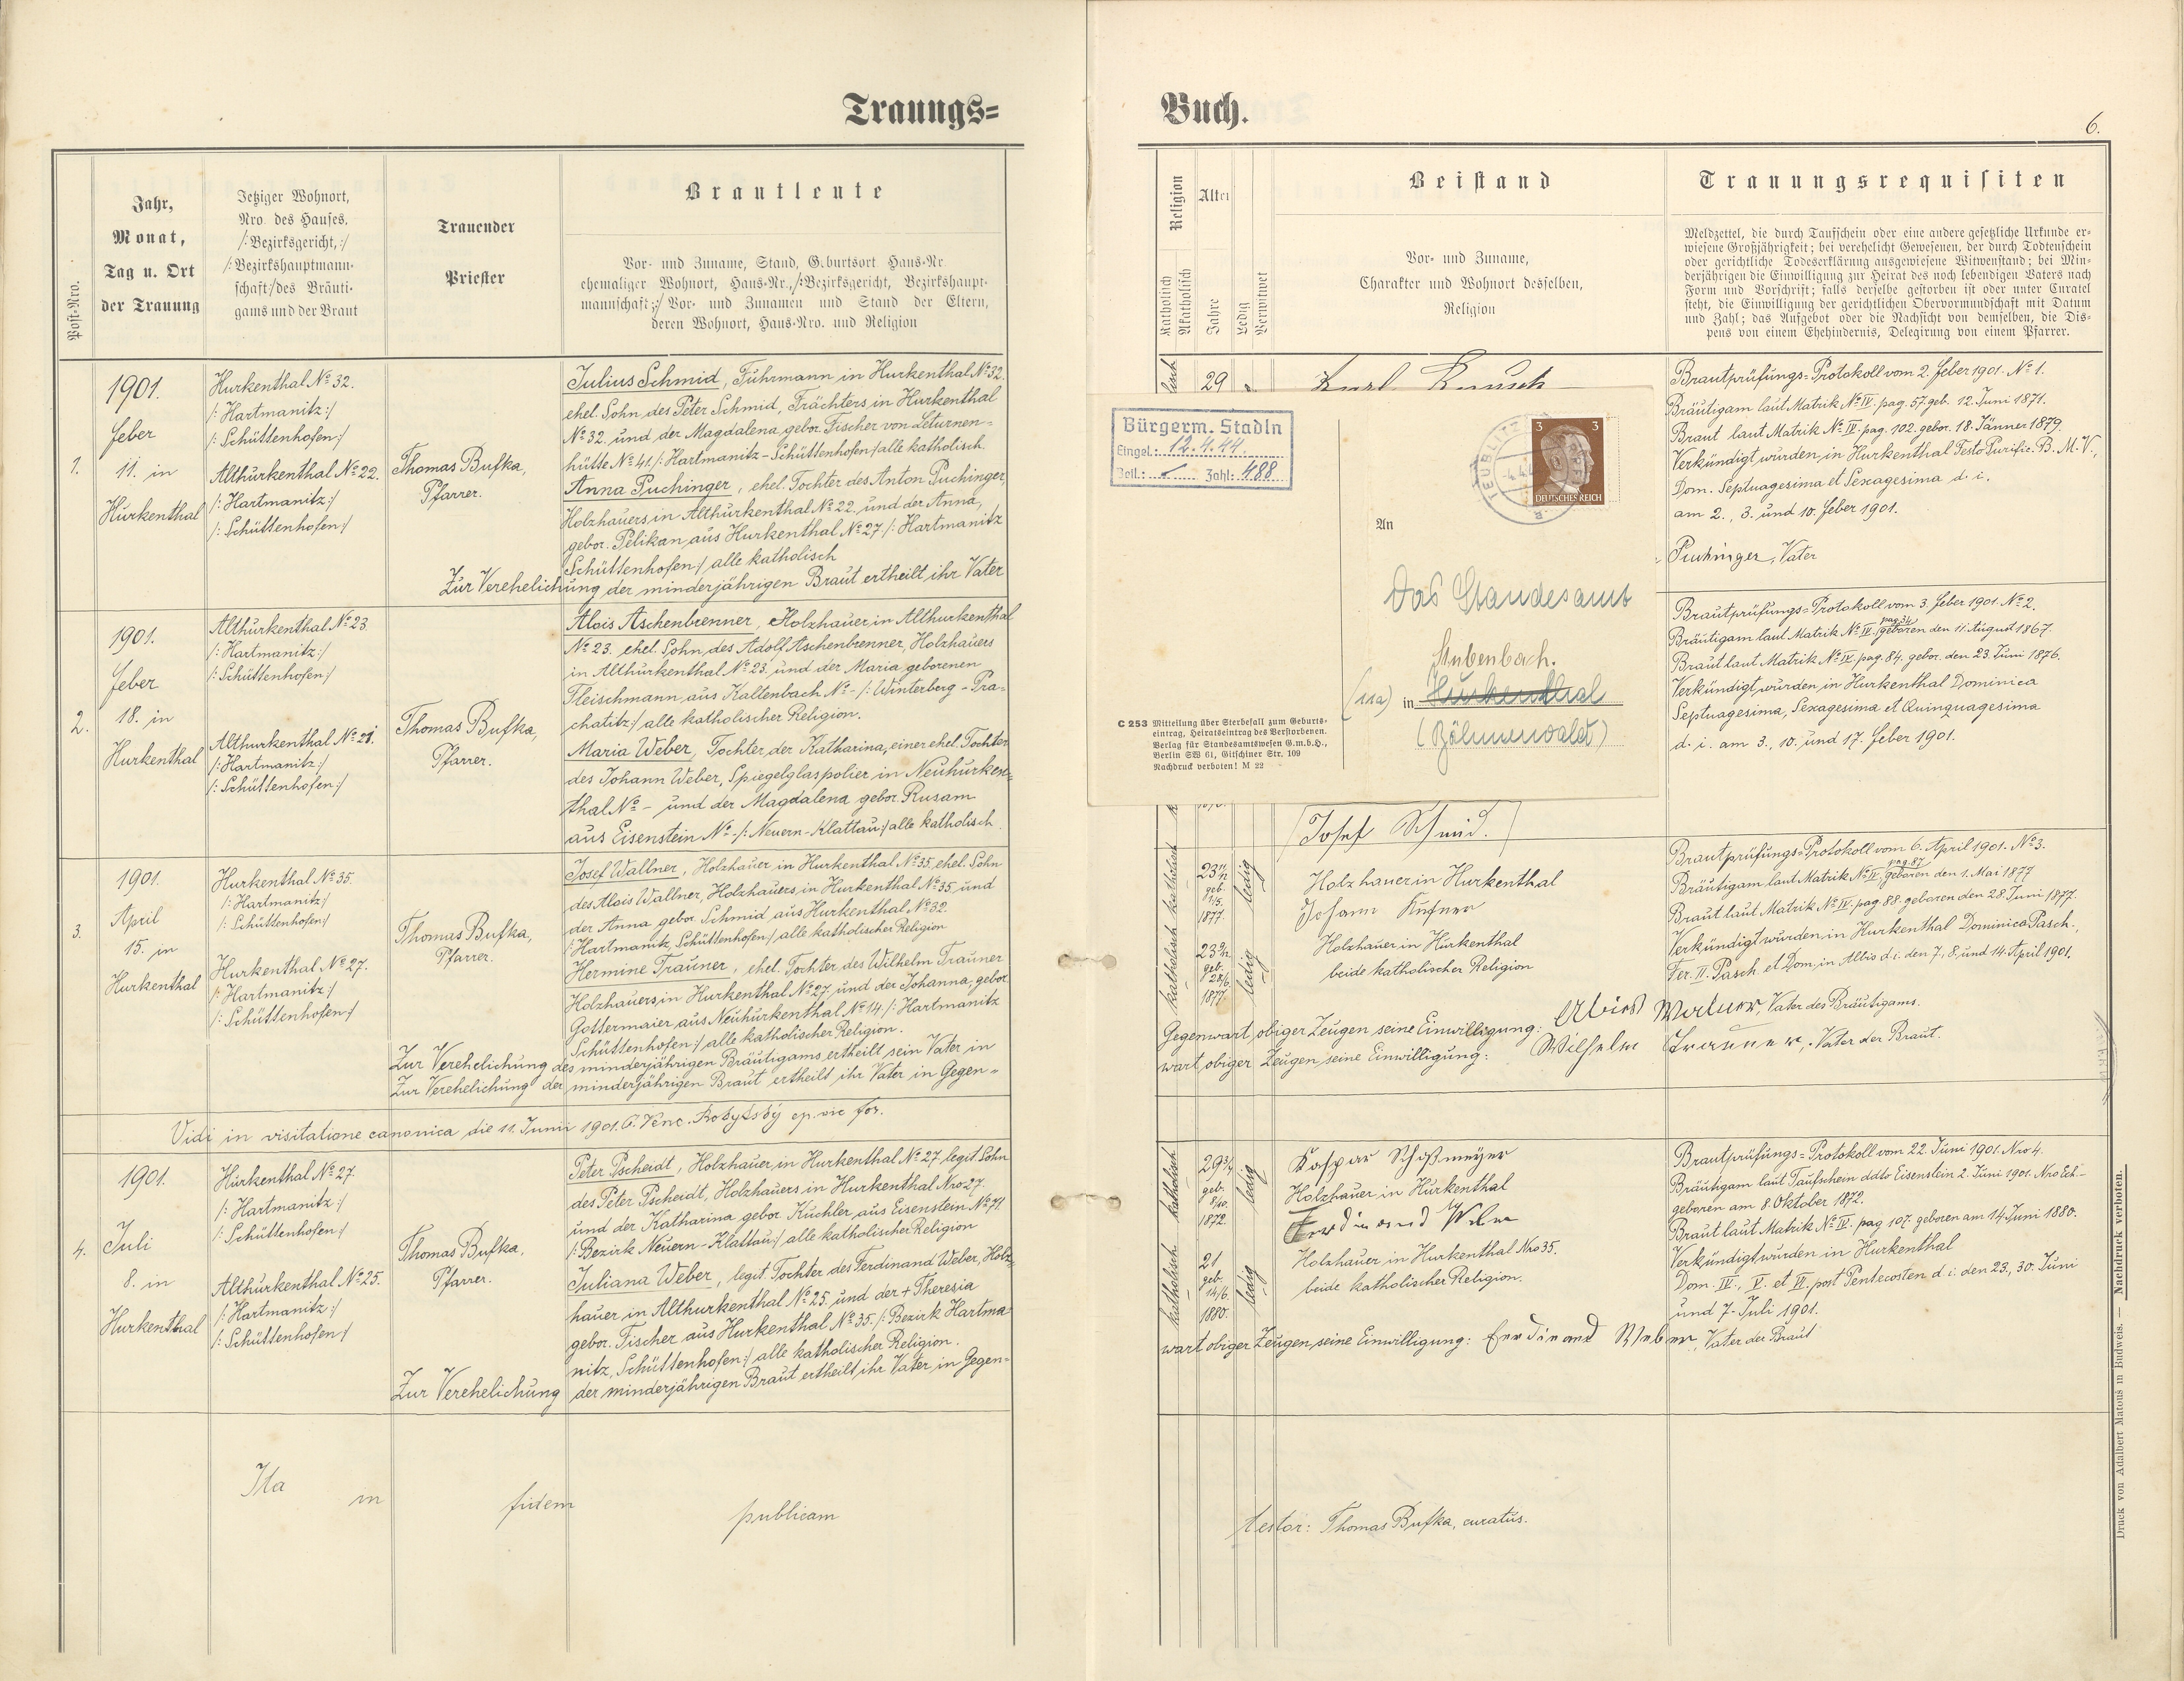 Trauungs=
Buch.
6.
Post-Nro.
Jahr,
Monat,
Tag u. Ort
der Trauung
Jetziger Wohnort,
Nro. des Hauses,
/:Bezirksgericht,:/
/:Bezirkshauptmann-
schaft:/des Bräuti-
gams und der Braut
Trauender
Priester
Brautleute
Vor- und Zuname, Stand, Geburtsort Haus-Nr.
ehemaliger Wohnort, Haus-Nr., /:Bezirksgericht, Bezirkshaupt-
mannschaft:/ Vor- und Zunamen und Stand der Eltern,
deren Wohnort, Haus-Nro. und Religion
Religion
Katholisch
Akatholisch
Alter
Jahre
Ledig
Verwitwet
Beistand
Vor- und Zuname,
Charakter und Wohnort desselben,
Religion
Trauungsrequisiten
Meldzettel, die durch Taufschein oder eine andere gesetzliche Urkunde er-
wiesene Großjährigkeit; bei verehelicht Gewesenen, der durch Todtenschein
oder gerichtliche Todeserklärung ausgewiesene Witwenstand; bei Min-
derjährigen die Einwilligung zur Heirat des noch lebendigen Vaters nach
Form und Vorschrift; falls derselbe gestorben ist oder unter Curatel
steht, die Einwilligung der gerichtlichen Obervormundschaft mit Datum
und Zahl; das Aufgebot oder die Nachsicht von demselben, die Dis-
pens von einem Ehehindernis, Delegirung von einem Pfarrer.
1.
1901.
Feber
11. in
Hurkenthal
Hurkenthal No 32.
/: Hartmanitz:/
/: Schüttenhofen:/
Althurkenthal No 22.
/: Hartmanitz:/
/: Schüttenhofen:/
Thomas Bufka,
Pfarrer.
Julius Schmid, Fuhrmann in Hurkenthal No 32.
ehel. Sohn des Peter Schmid, Frächters, in Hurkenthal
No 32. und der Magdalena gebor. Fischer von Leturnen=
hütte No 41. /: Hartmanitz - Schüttenhofen/ alle katholisch.
Anna Puchinger, ehel. Tochter des Anton Puchinger,
Holzhauers, in Althurkenthal No 22. und der Anna,
gebor. Pelikan aus Hurkenthal No 27 /: Hartmanitz
Schüttenhofen/ alle katholisch
Zur Verehelichung der minderjährigen Braut ertheilt ihr Vater
29
Karl
Brautprüfungs=Protokoll vom 2. Feber 1901. No 1.
Bräutigam laut Matrik No IV. pag. 57. geb. 12. Juni 1871.
Braut laut Matrik No IV. pag. 102. gebor. 18. Jänner 1879.
Verkündigt wurden, in Hurkenthal Festo Purific. B. M. V.,
Dom. Septuagesima et Sexagesima d. i.
am 2., 3. und 10. Feber 1901.
Puchinger, Vater
Bürgerm. Stadln
Eingel.: 12.4.44.
Beil.: Zahl: 488
TEUBLITZ
3 3
DEUTSCHES REICH
An
Das Standesamt
Stubenbach.
in Hurkenthal
(Böhmerwald)
C 253 Mitteilung über Sterbefall zum Geburts-
eintrag, Heiratseintrag des Verstorbenen.
Verlag für Standesamtswesen G.m.b.H.,
Berlin SW 61, Gitschiner Str. 109
Nachdruck verboten! M 22
2.
1901.
Feber
18. in
Hurkenthal
Althurkenthal No 23
/: Hartmanitz:/
/: Schüttenhofen/
Althurkenthal No 21.
/: Hartmanitz:/
/: Schüttenhofen:/
Thomas Bufka,
Pfarrer.
Alois Aschenbrenner, Holzhauer in Althurkenthal
No 23. ehel. Sohn des Adolf Aschenbrenner, Holzhauers
in Althurkenthal No 23. und der Maria geborenen
Fleischmann aus Kaltenbach No - /: Winterberg - Pra=
chatitz:/ alle katholischer Religion.
Maria Weber, Tochter der Katharina, einer ehel. Tochter
des Johann Weber, Spiegelglaspolier in Neuhurken=
thal No - und der Magdalena gebor. Rusam
aus Eisenstein No - /: Neuern - Klattau:/ alle katholisch.
Josef Schmid.
Brautprüfungs=Protokoll vom 3. Feber 1901. No 2.
Bräutigam laut Matrik No IV. pag. 34 geboren den 11. August 1867.
Braut laut Matrik No IV. pag. 84. gebor. den 23. Juni 1876.
Verkündigt wurden, in Hurkenthal Dominica
Septuagesima, Sexagesima et Quinquagesima
d. i. am 3., 10. und 17. Feber 1901.
3.
1901.
April
15. in
Hurkenthal
Hurkenthal No 35.
/: Hartmanitz:/
/: Schüttenhofen:/
Hurkenthal No 27.
/: Hartmanitz:/
/: Schüttenhofen:/
Thomas Bufka,
Pfarrer.
Josef Wallner, Holzhauer in Hurkenthal No 35, ehel. Sohn
des Alois Wallner, Holzhauers, in Hurkenthal No 35 und
der Anna gebor. Schmid, aus Hurkenthal No 32.
/: Hartmanitz, Schüttenhofen:/ alle katholischer Religion
Hermine Trauner, ehel. Tochter des Wilhelm Trauner
Holzhauers, in Hurkenthal No 27. und der Johanna, gebor.
Gottermaier aus Neuhurkenthal No 14. /: Hartmanitz
Schüttenhofen:/ alle katholischer Religion.
Zur Verehelichung des minderjährigen Bräutigams, ertheilt sein Vater in
Zur Verehelichung der minderjährigen Braut ertheilt ihr Vater in Gegen=
katholisch
geb.
1/5.
1877.
ledig
katholisch
geb.
28/6.
1877.
ledig
Holzhauer in Hurkenthal
Johann Kufner
Holzhauer in Hurkenthal
beide katholischer Religion
Brautprüfungs=Protokoll vom 6. April 1901. No 3.
Bräutigam laut Matrik No IV. pag. 87 geboren den 1. Mai 1877
Braut laut Matrik No IV. pag. 88. geboren den 28. Juni 1877.
Verkündigt wurden, in Hurkenthal Dominica Pasch.,
Fer. II. Pasch. et Dom. in Albis d. i. den 7., 8. und 14. April 1901.
Gegenwart, obiger Zeugen seine Einwilligung: Alois Wallner, Vater des Bräutigams.
wart obiger Zeugen, seine Einwilligung: Wilhelm Trauner, Vater der Braut.
Vidi in visitatione canonica die 11. Junii 1901.
4.
1901.
Juli
8. in
Hurkenthal
Hurkenthal No 27.
/: Hartmanitz:/
/: Schüttenhofen:/
Althurkenthal No 25.
/: Hartmanitz:/
/: Schüttenhofen/
Thomas Bufka,
Pfarrer.
Peter Pscheidt, Holzhauer, in Hurkenthal No 27, legit. Sohn
des Peter Pscheidt, Holzhauers, in Hurkenthal Nro 27.
und der Katharina gebor. Küchler, aus Eisenstein No 71.
/: Bezirk Neuern - Klattau:/ alle katholischer Religion
Juliana Weber, legit. Tochter des Ferdinand Weber, Holz=
hauer in Althurkenthal No 25. und der + Theresia
gebor. Fischer aus Hurkenthal No 35. /: Bezirk Hartma
nitz, Schüttenhofen:/ alle katholischer Religion.
Zur Verehelichung der minderjährigen Braut ertheilt ihr Vater in Gegen=
katholisch
29 3/4
geb.
8/10.
1872.
ledig
katholisch
21
geb.
14/6.
1880.
ledig
Kaspar Schoßmeyer
Holzhauer in Hurkenthal
Ferdinand
Holzhauer in Hurkenthal Nro 35.
beide katholischer Religion.
Brautprüfungs=Protokoll vom 22. Juni 1901. Nro 4.
Bräutigam laut Taufschein ddto Eisenstein 2. Juni 1901. Nro Exh-
geboren am 8. Oktober 1872.
Braut laut Matrik No IV. pag 107. geboren am 14. Juni 1880.
Verkündigt wurden in Hurkenthal
Dom. IV., V. et VI. post Pentecosten d. i. den 23., 30. Juni
und 7. Juli 1901.
wart obiger Zeugen, seine Einwilligung: Ferdinand Weber, Vater der Braut
Ita in fidem publicam
testor: Thomas Bufka, curatus.
Druck von Adalbert Matouš in Budweis. — Nachdruck verboten.